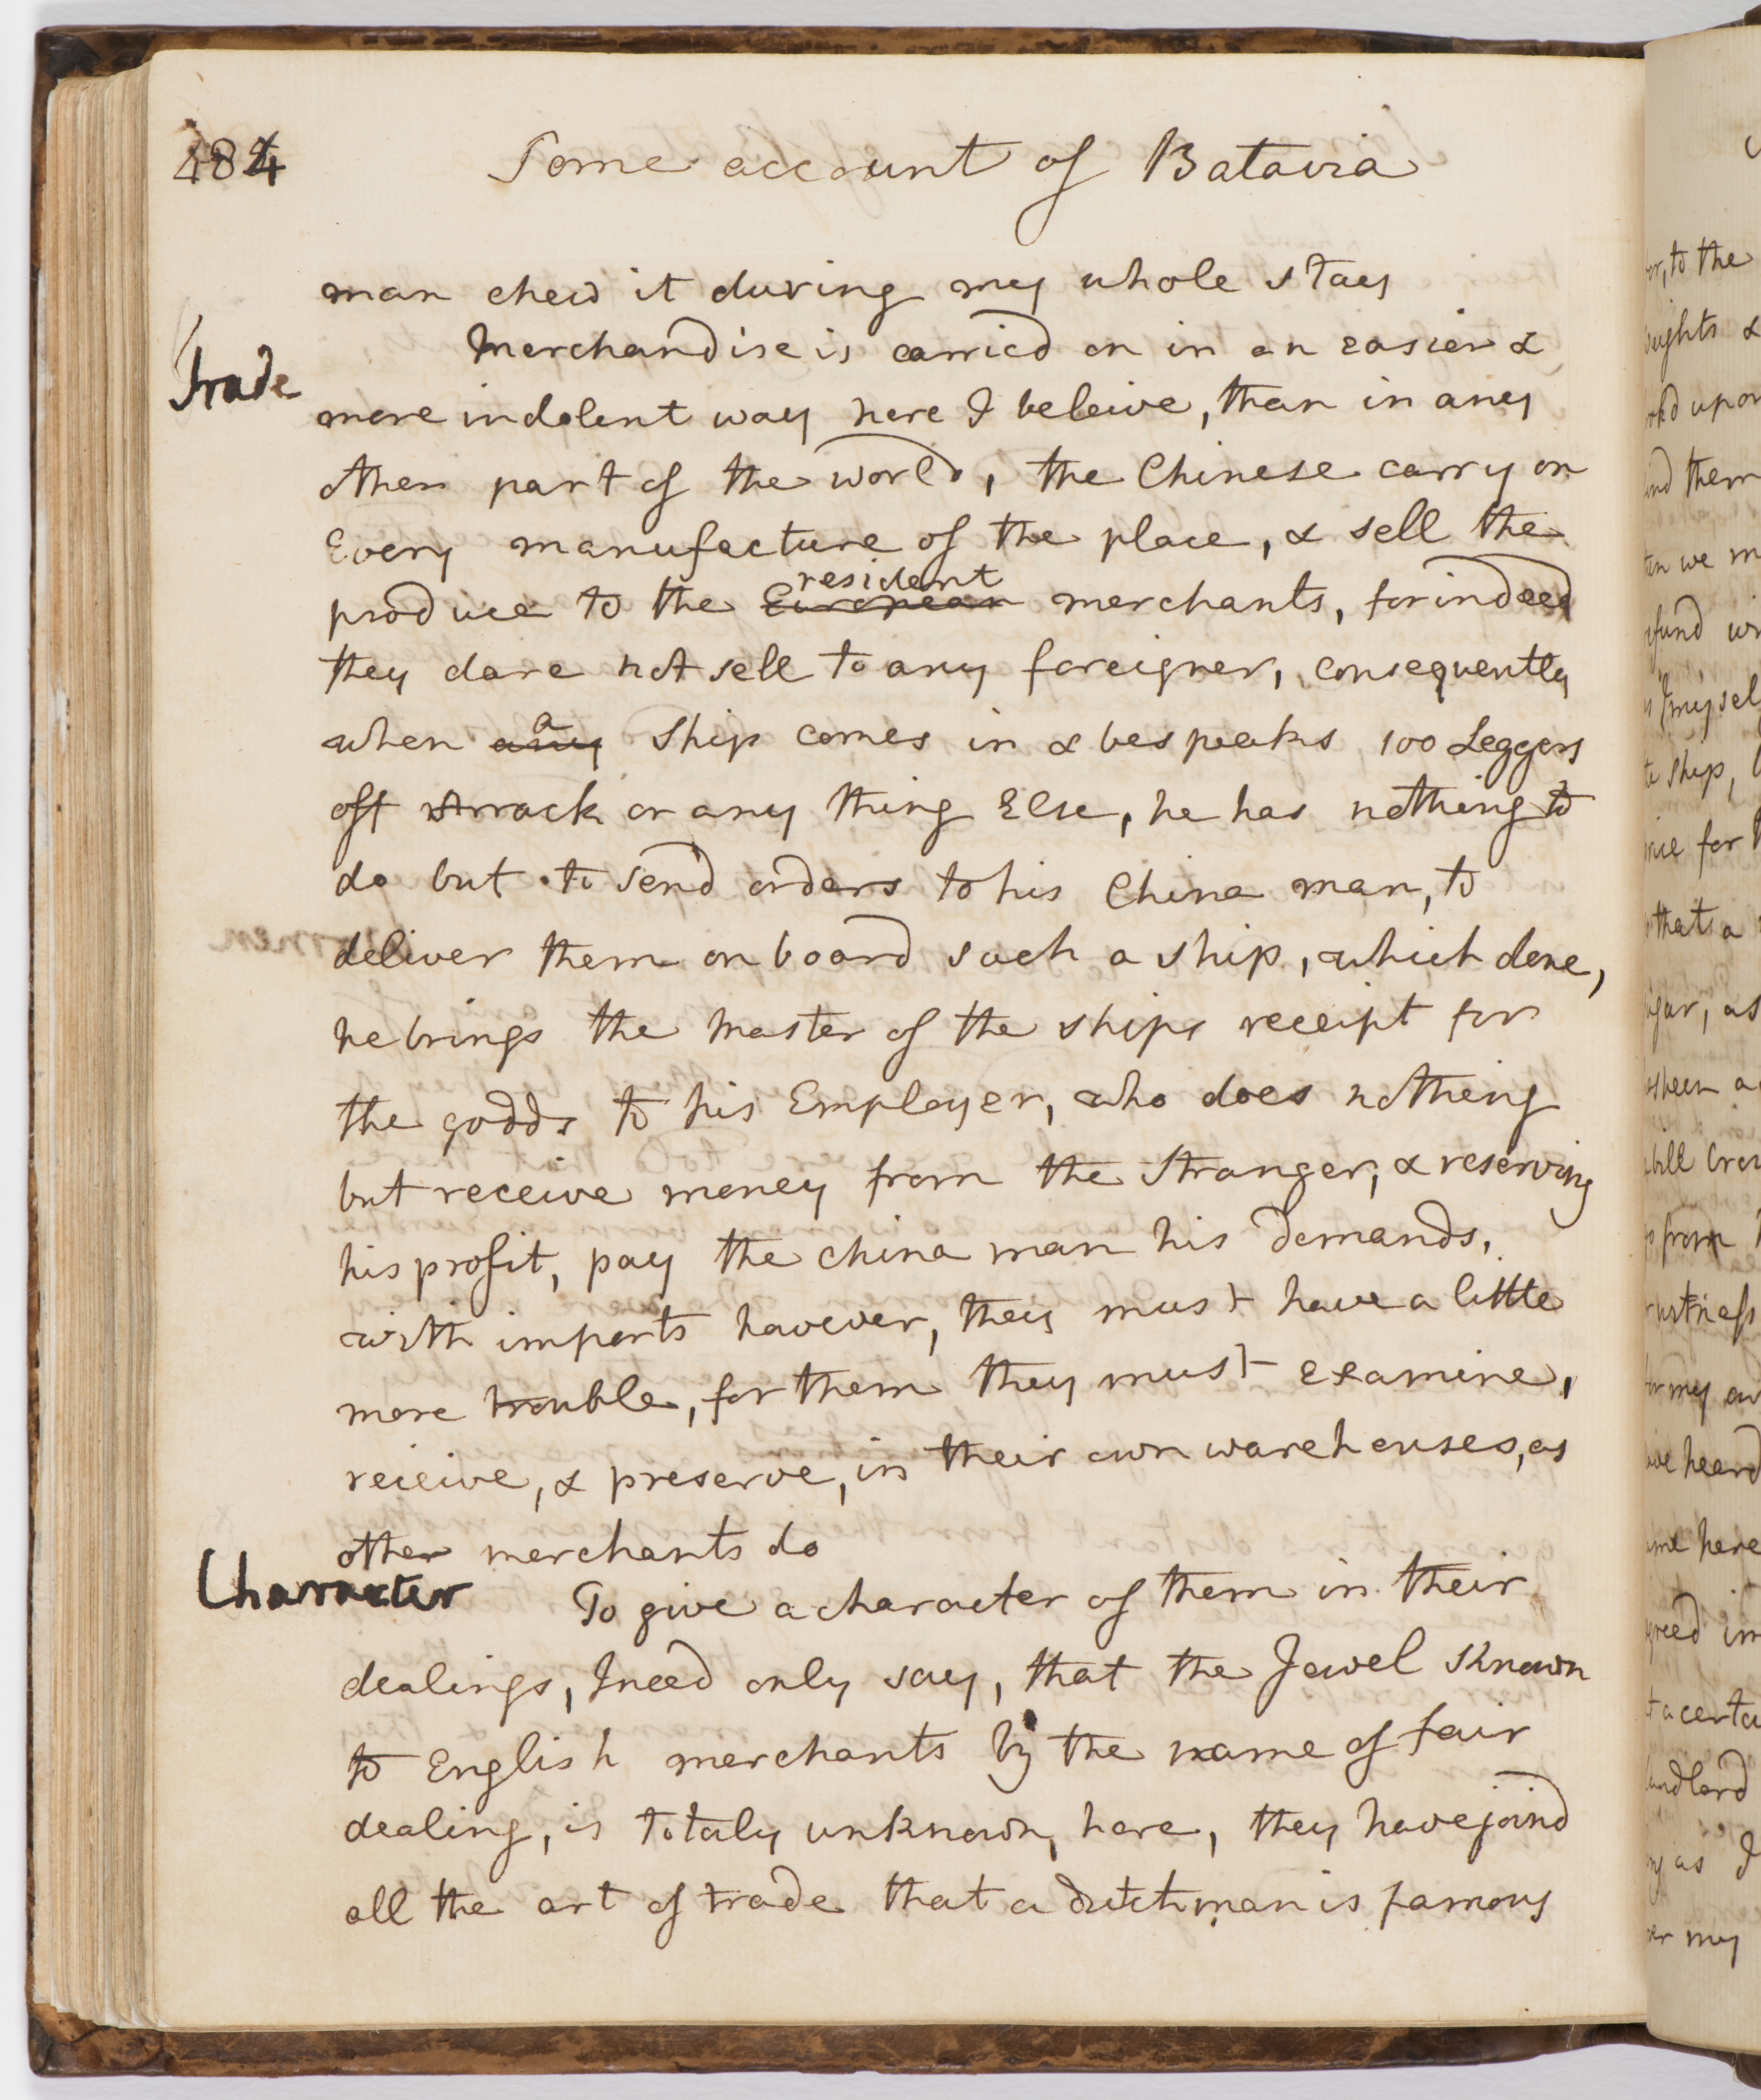 484
Some account of Batavia
man chew it during my whole stay
Trade
Merchandise is carried on in an easier &
more indolent way here I beleive, than in any
other part of the world, the Chinese carry on
Every manufacture of the place, & sell the
resident
produce to the European merchants, for indeed
they dare not sell to any foreigner, consequently
a
when any Ship comes in & bespeaks 100 Leggers
off Arrack or any thing Else, he has nothing to
do but to send orders to his China man, to
deliver them on board such a ship, which done,
he brings the master of the ships receipt for
the godds to his Employer, who does nothing
but receive money from the Stranger, & reserving
his profit, pay the china man his demands,
with imports however, they must have a little
more trouble, for them they must examine,
reieive, & preserve, in their own warehouses, as
other merchants do
Character
To give a character of them in their
dealings, I need only say, that the Jewel Known
to English merchants by the name of fair
dealing, is totaly unknown here, they have joind
all the art of trade that a dutchman is famous
to the
upon
them
we
for
that a
as
from
my
heard
here
a
landlord
as I
my